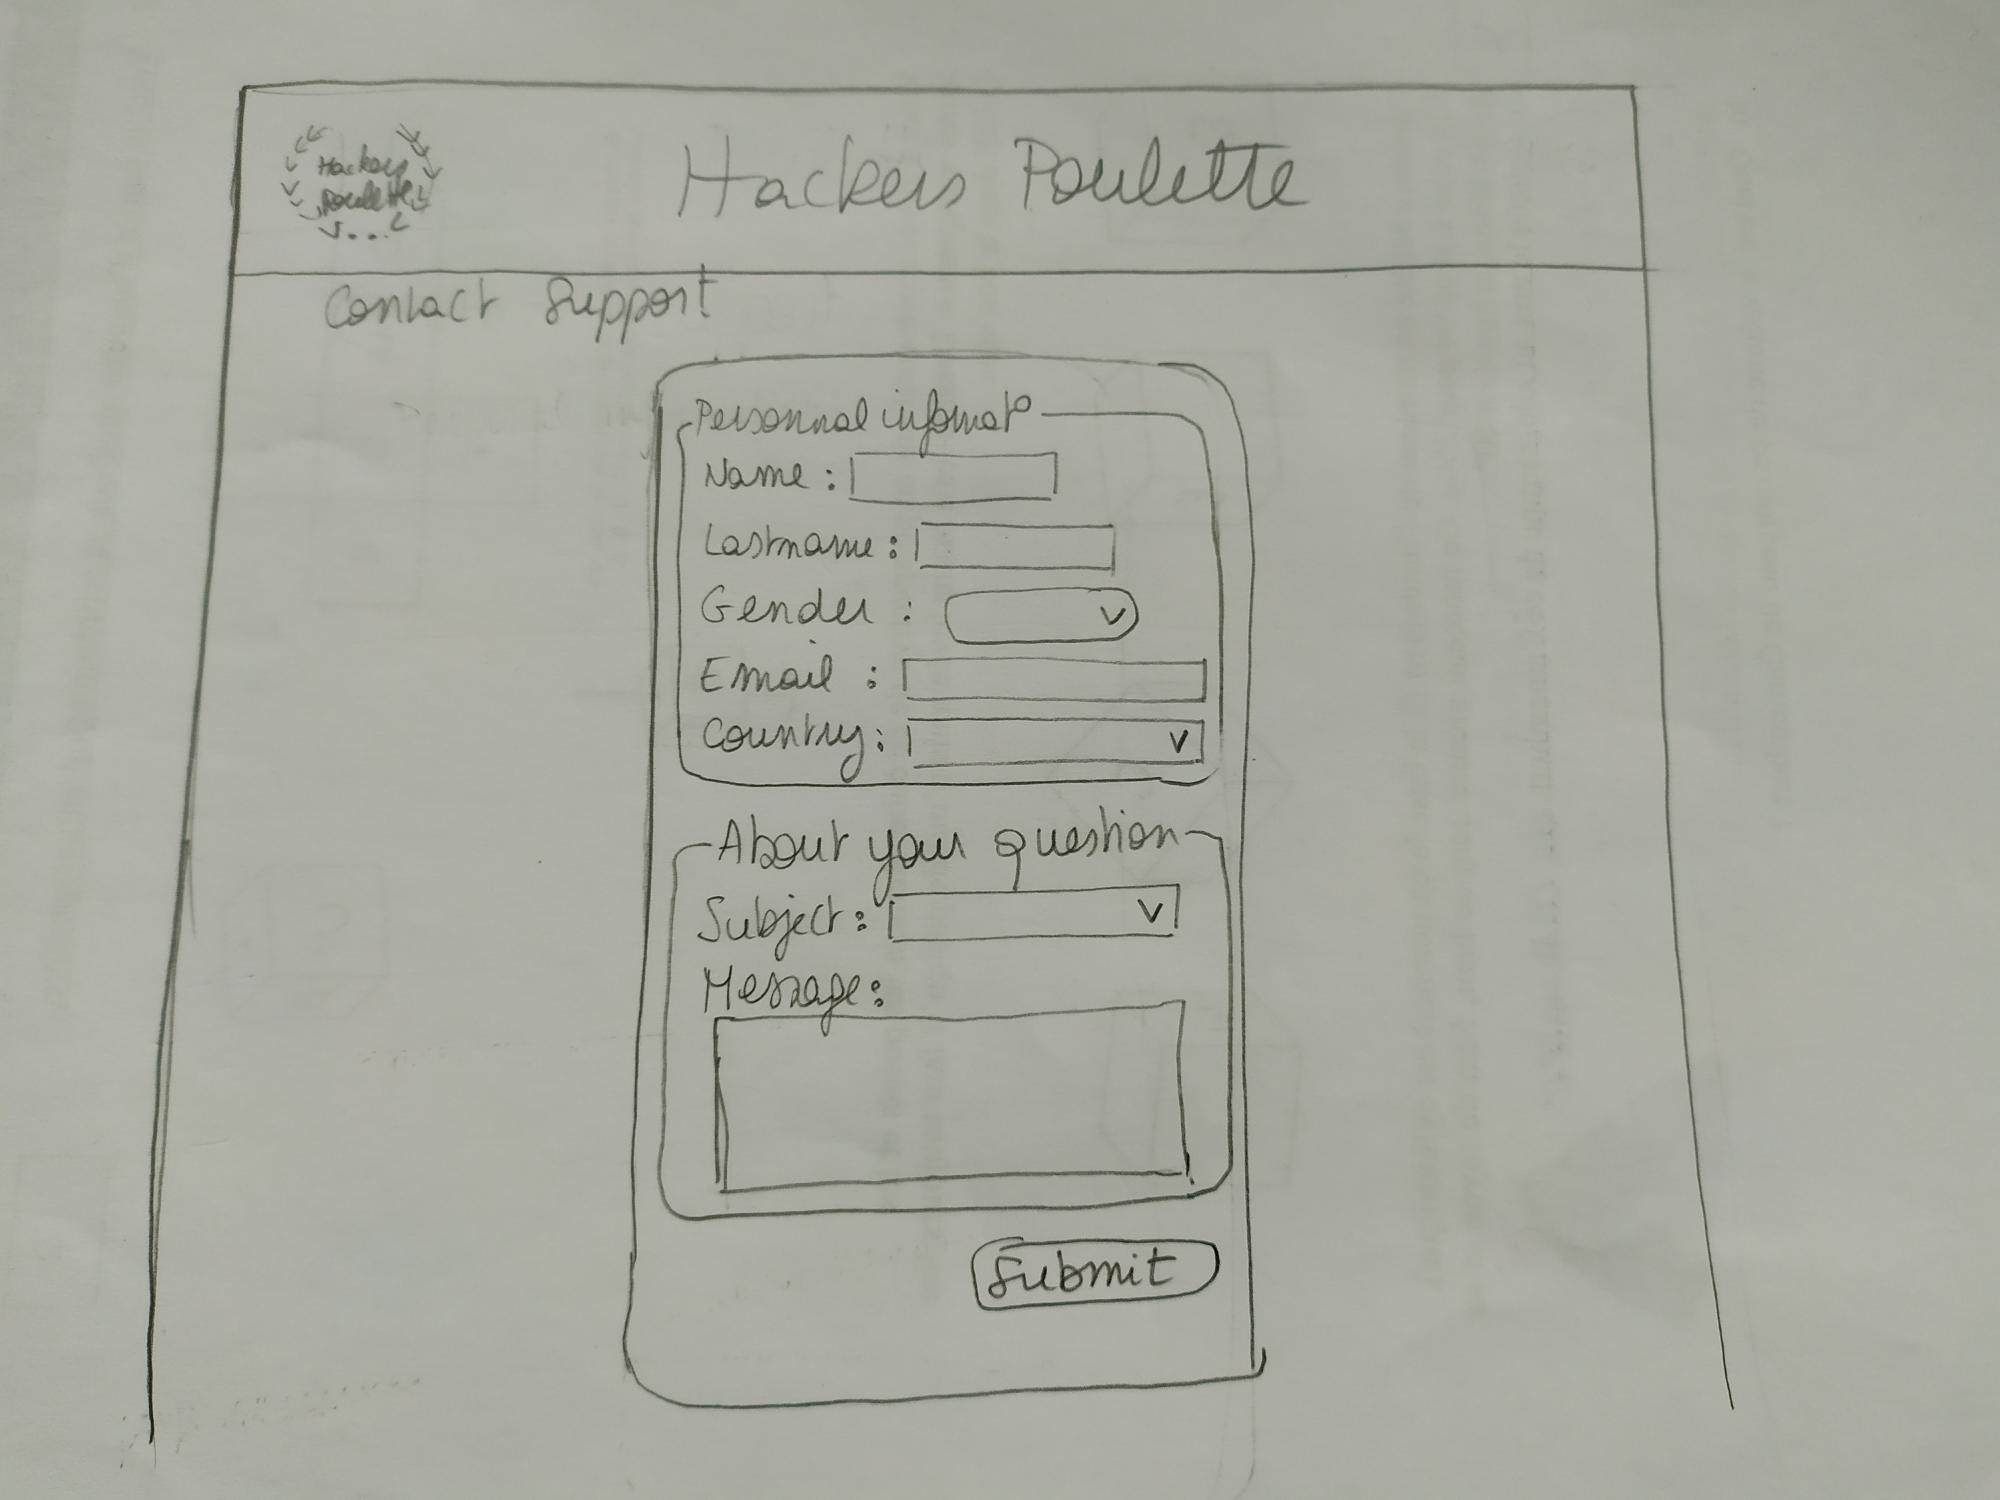 Hackers
Poulette
Hackers Poulette
Contact Support
Personnal informat°
Name :
Lastname :
Gender :
Email :
Country :
About your question
Subject :
V
Message :
Submit